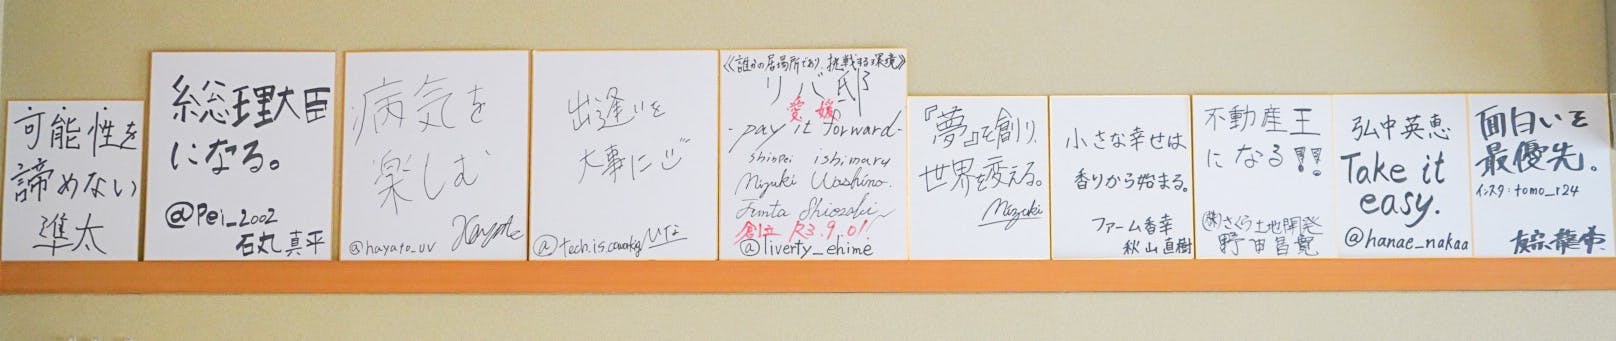 可能性を
諦めない
準太
総理大臣
になる。
@Pei_2002
石丸真平
病気を
楽しむ
@hayato_uv Hayato
出逢いを
大事に
@tech.is.coworking
《誰かの居場所であり、挑戦する環境》
リバ邸
愛媛
-pay it forward-
Shinpei ishimaru
Mizuki Washino.
Junta Shiozaki
創立 R3.9.01!
@liverty_ehime
『夢』を創り、
世界を変える。
Mizuki
小さな幸せは
香りから始まる。
ファーム香幸
秋山直樹
不動産王
になる!!
(株)さくら土地開発
野田昌寛
弘中英恵
Take it
easy.
@hanae_nakaa
面白いを
最優先。
インスタ:tomo_r24